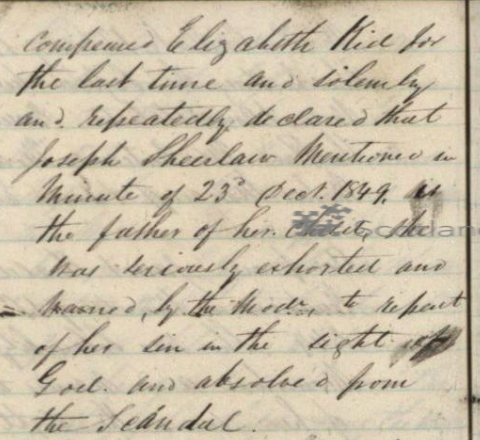 Compeared Elizabeth Kid for
the last time and solemnly
and repeatedly declared that
Joseph Sheerlaw Mentioned in
Minute of 23d Dect. 1849, is
the father of her child, she
was seriously exhorted and
= warned, by the Modr., to repent
of her sin in the sight of
God. and absolved from
the Scandal.